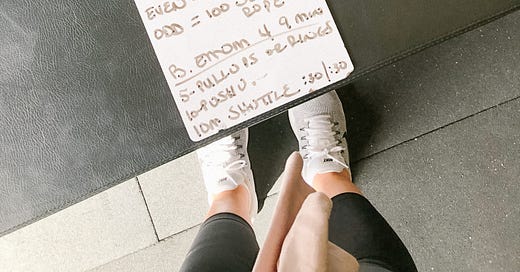 EVEN
ODD = 100
ROPE
B. EMOM 4 9 MIN
5- PULLUPS OR RINGS
10 PUSHU
10M SHUTTLE :30/:30